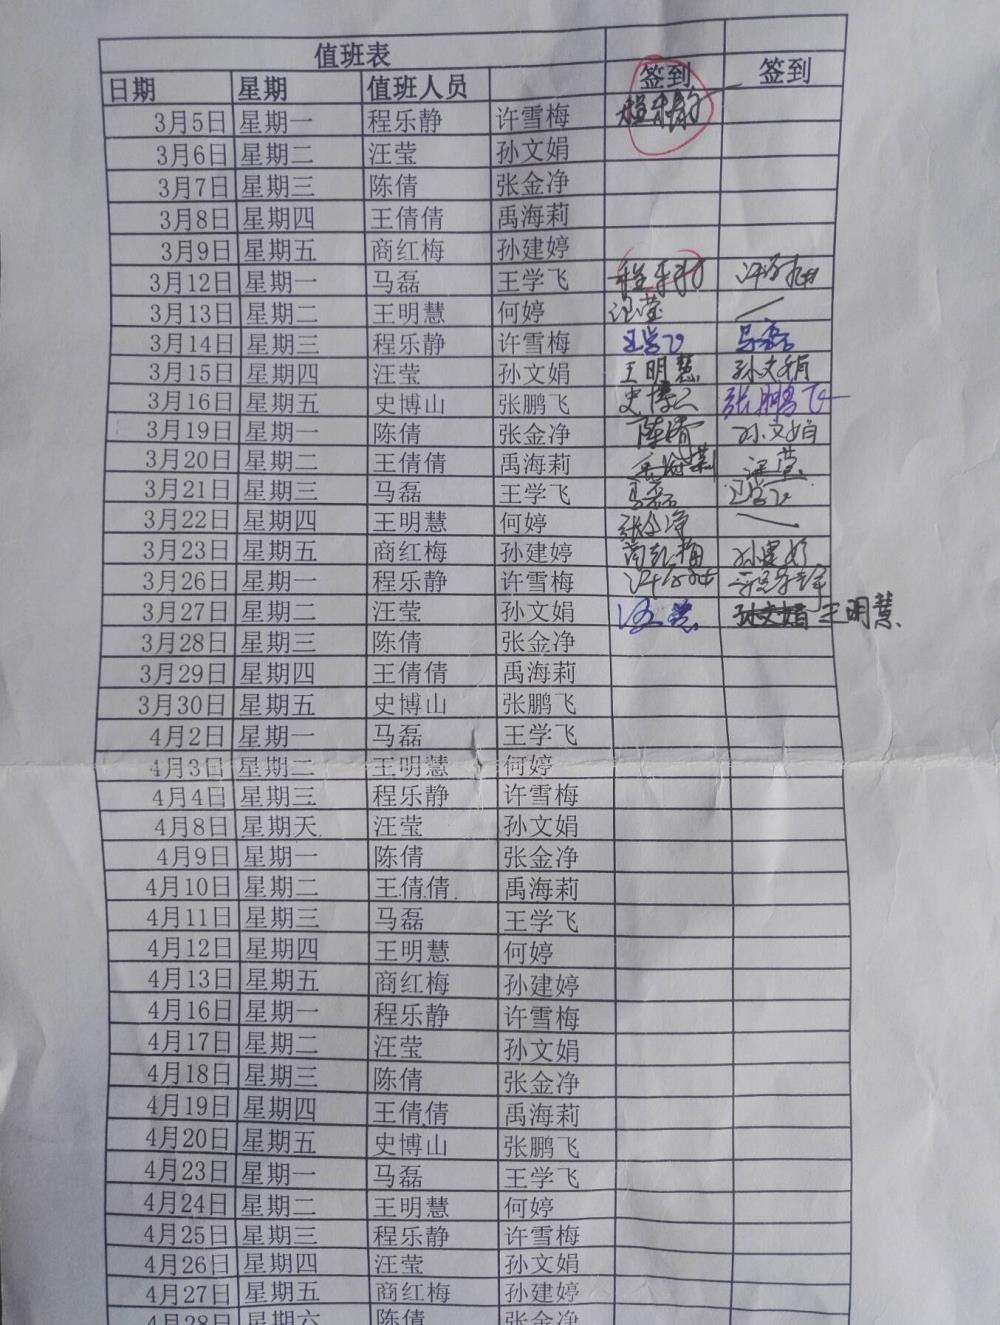 值班表
日期 星期 值班人员 签到 签到
3月5日 星期一 程乐静 许雪梅 程乐静
3月6日 星期二 汪莹 孙文娟
3月7日 星期三 陈倩 张金净
3月8日 星期四 王倩倩 禹海莉
3月9日 星期五 商红梅 孙建婷
3月12日 星期一 马磊 王学飞
3月13日 星期二 王明慧 何婷 汪莹
3月14日 星期三 程乐静 许雪梅 王学飞 马磊
3月15日 星期四 汪莹 孙文娟 王明慧 孙文娟
3月16日 星期五 史博山 张鹏飞 史博山 张鹏飞
3月19日 星期一 陈倩 张金净 陈倩 孙文娟
3月20日 星期二 王倩倩 禹海莉 禹海莉 汪莹
3月21日 星期三 马磊 王学飞 马磊 王学飞
3月22日 星期四 王明慧 何婷 张金净
3月23日 星期五 商红梅 孙建婷 商红梅 孙建婷
3月26日 星期一 程乐静 许雪梅
3月27日 星期二 汪莹 孙文娟 王明慧
3月28日 星期三 陈倩 张金净
3月29日 星期四 王倩倩 禹海莉
3月30日 星期五 史博山 张鹏飞
4月2日 星期一 马磊 王学飞
4月3日 星期二 王明慧 何婷
4月4日 星期三 程乐静 许雪梅
4月8日 星期天 汪莹 孙文娟
4月9日 星期一 陈倩 张金净
4月10日 星期二 王倩倩 禹海莉
4月11日 星期三 马磊 王学飞
4月12日 星期四 王明慧 何婷
4月13日 星期五 商红梅 孙建婷
4月16日 星期一 程乐静 许雪梅
4月17日 星期二 汪莹 孙文娟
4月18日 星期三 陈倩 张金净
4月19日 星期四 王倩倩 禹海莉
4月20日 星期五 史博山 张鹏飞
4月23日 星期一 马磊 王学飞
4月24日 星期二 王明慧 何婷
4月25日 星期三 程乐静 许雪梅
4月26日 星期四 汪莹 孙文娟
4月27日 星期五 商红梅 孙建婷
4月28日 星期六 陈倩 张金净